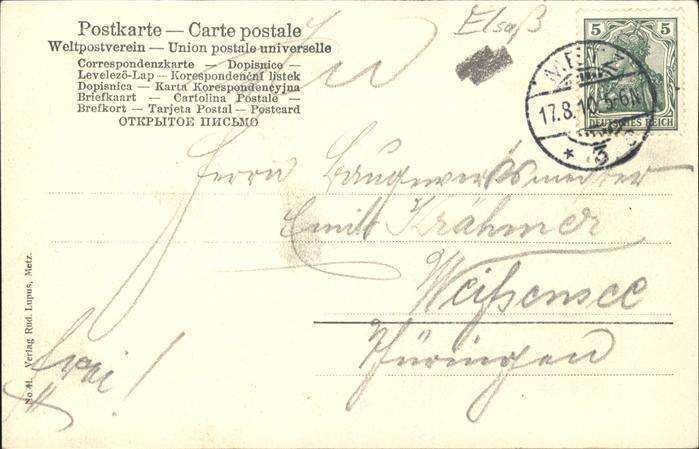 Postkarte — Carte postale
Weltpostverein — Union postale universelle
Correspondenzkarte — Dopisnice —
Levelező-Lap — Korespondenční listek
Dopisnica — Karta Korespondencyjna
Briefkaart — Cartolina Postale —
Brefkort — Tarjeta Postal — Postcard
ОТКРЫТОЕ ПИСЬМО
Elsaß
5 5
DEUTSCHES REICH
17.8.10. 5-6N
* 3
Herrn Baugewerksmeister
Emil Krähmer
Weißensee
Thüringen
No 41. Verlag Rud. Lupus, Metz.